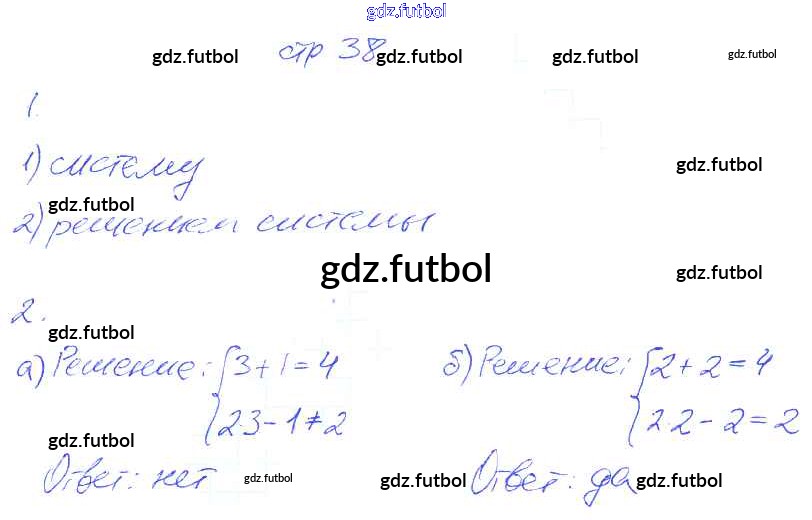 gdz.futbol
стр 38
gdz.futbol gdz.futbol gdz.futbol gdz.futbol
1.
1) систему
gdz.futbol
gdz.futbol
2) решением системы
gdz.futbol gdz.futbol
2.
gdz.futbol gdz.futbol
а) Решение: { 3 + 1 = 4
2·3 - 1 ≠ 2
б) Решение: { 2 + 2 = 4
2·2 - 2 = 2
gdz.futbol
Ответ: нет
Ответ: да
gdz.futbol gdz.futbol gdz.futbol